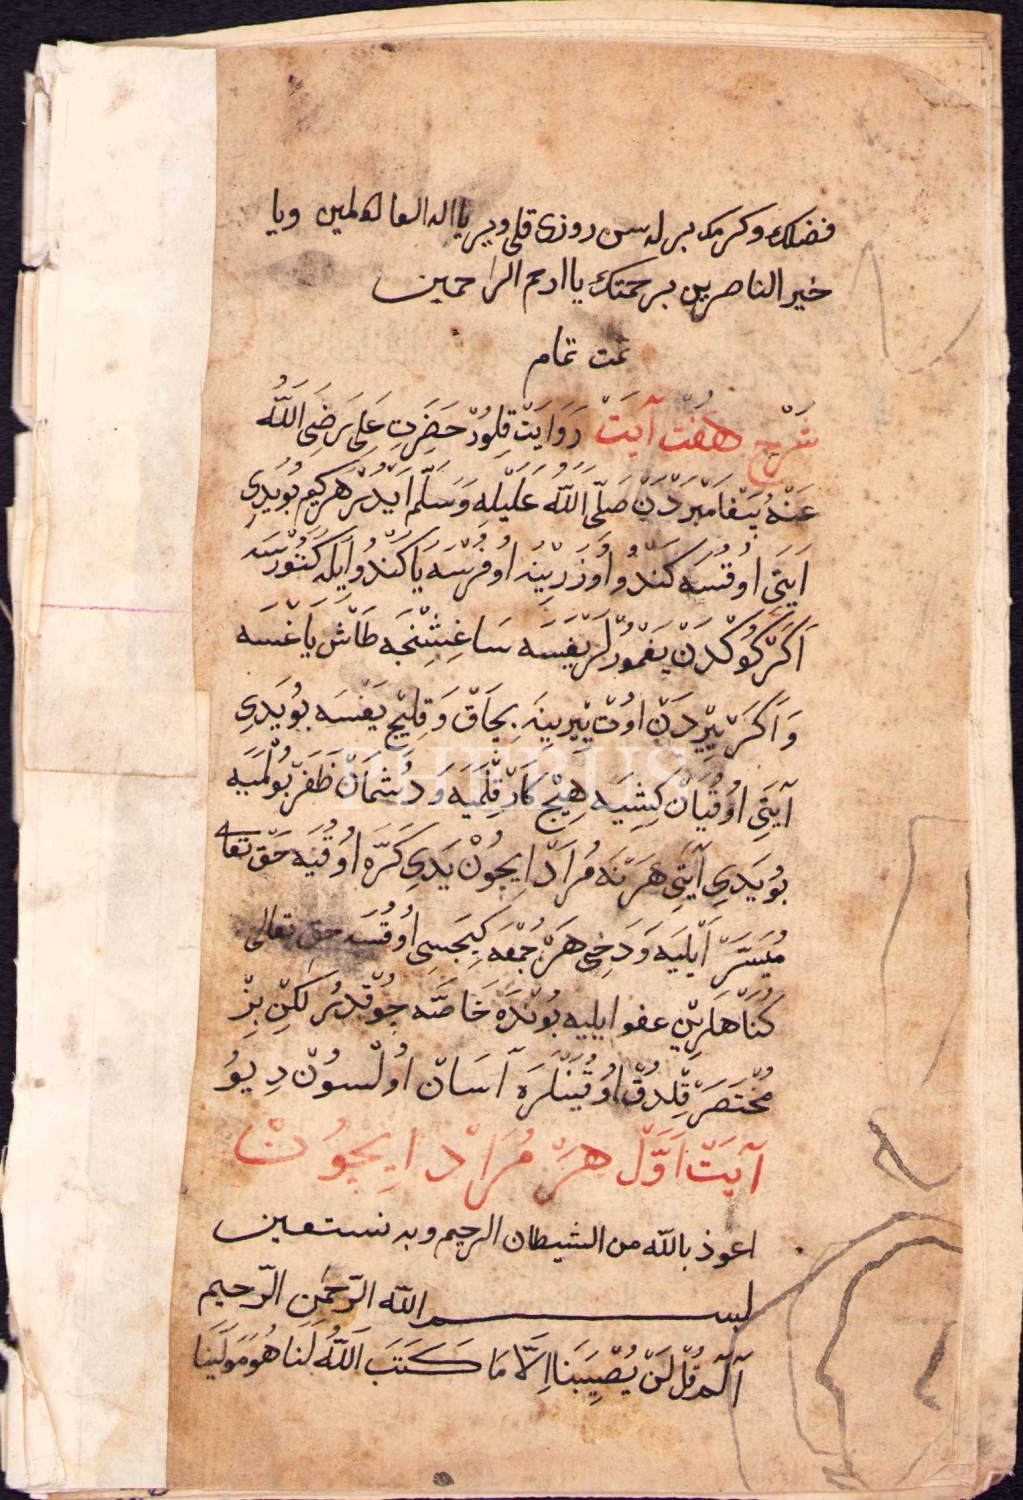 فضلك وكرمك برله سن روزى قلى وير يا اله العالمين ويا
خير الناصرين برحمتك يا ارحم الراحمين
تمت تمام
شَرْحِ هَفْت آيَتْ رَوَايَتْ قِلُورْ حَضَرَتِ عَلِى رَضِىَ اللّٰهُ
عَنْهُ پَيْغَامْبَرْدَنْ صَلَّى اللّٰهُ عَلَيْلِهِ وَسَلَّمْ اَيْدُرْ هَرْكِيمْ بُو يَدِى
اَيَتِى اوُقُسَه كَنْدُو اوُزَرِينَه اوُفُرْسَه يَا كَنْدُو ايله كُتُورْسَه
اَكَرْ كُوكْدَنْ يَغْمُورْلَرْ يَغَسَه سَاغِشِنْجَه طَاشْ يَاغْسَه
وَاَكَرْ يِيرْدَنْ اوُتْ يِيرِينَه بِچَاقْ وَ قِلِيچْ يَغْسَه بُو يَدِى
آيَتِى اوُقُيَانْ كِشِيَه هِيچْ كَارْ قِلْمَيَه وَ دُشْمَانْ ظَفَرْ بُولْمَيَه
بُو يَدِى آيَتِى هَرْ نَه مُرَادْ اِيچُونْ يَدِى كَرَّه اوُقُيَه حَقْ تَعَا
مُيَسَّرْ اَيْلَيَه وَ دَخِى هَرْ جُمْعَه كِيجَسِى اوُقُسَه حق تعالى
كُنَاهلَرِينْ عفو ايليه بُونْدَه خَاصَّه چُوقْدُرْ لَكِنْ بِزْ
مُخْتَصَرْ قِلْدُقْ اوُقُيَنْلَرَه آسَانْ اوُلْسُونْ دِيُو
آيَتْ اَوَّلْ هَرْ مُرَادْ اِيچُونْ
اعوذ بالله من الشيطان الرجيم وبه نستعين
بســـم الله الرّحمن الرّحيم
آلم قُلْ لَنْ يُصِيبَنَا اِلَّا مَا كَتَبَ اللّٰهُ لَنَا هُوَ مَوْلَينَا